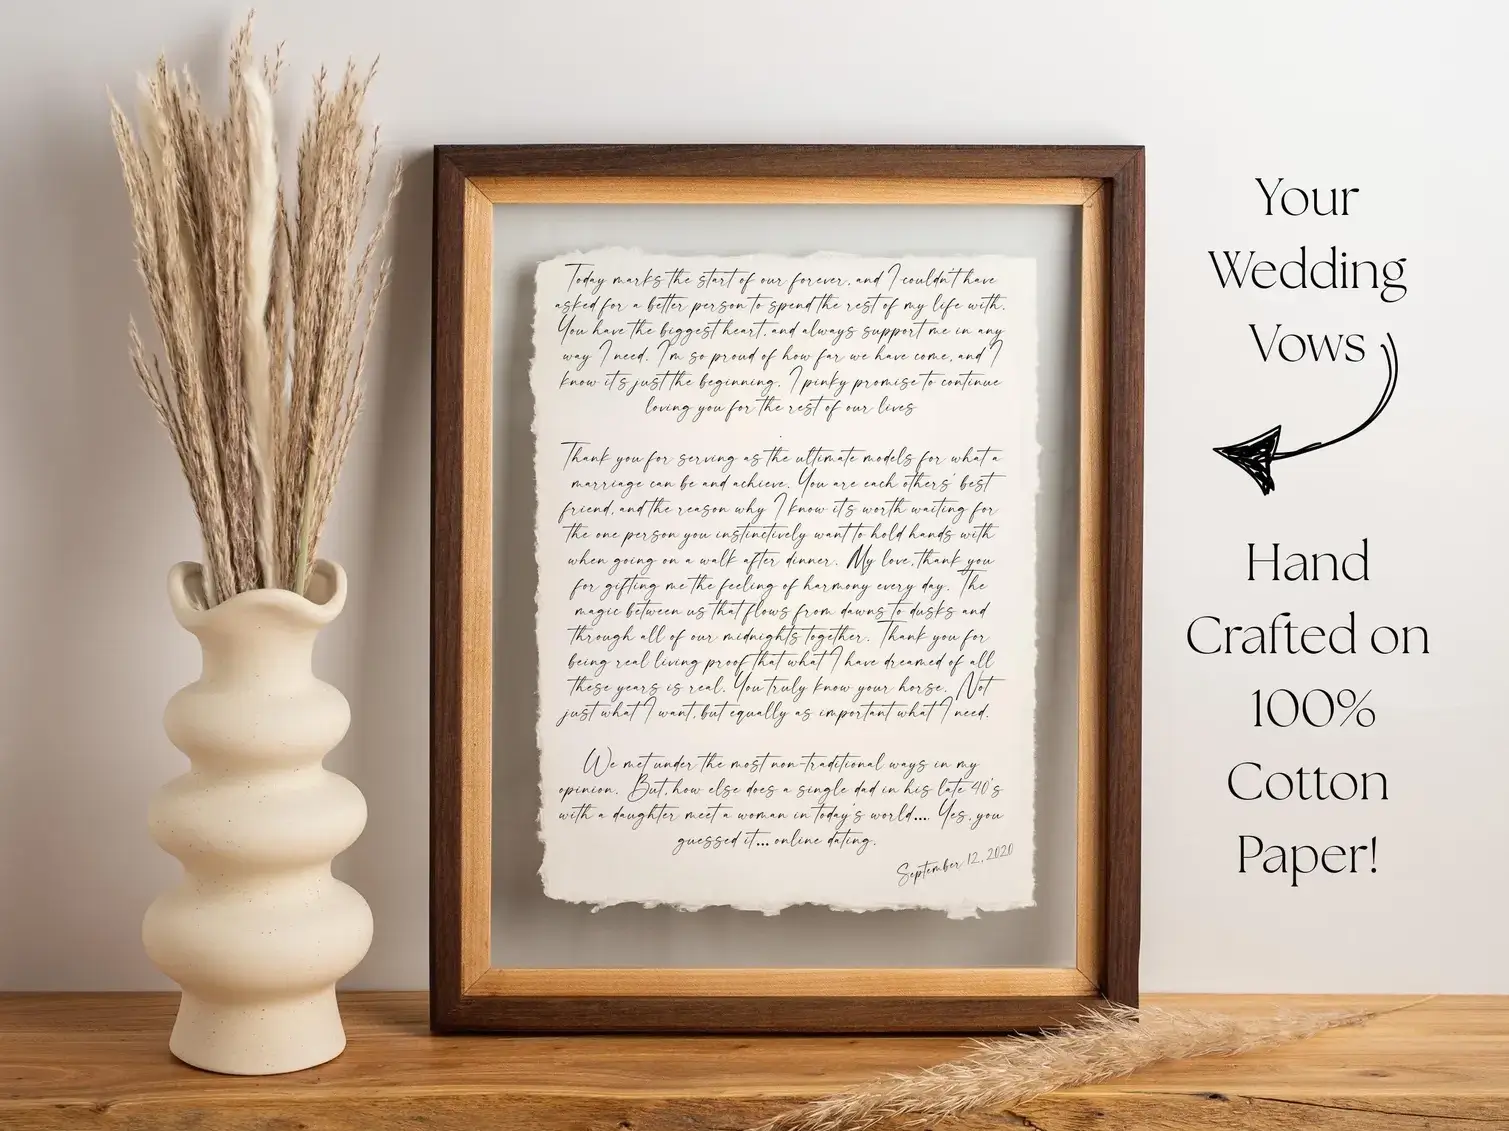 Today marks the start of our forever, and I couldn't have
asked for a better person to spend the rest of my life with.
You have the biggest heart, and always support me in any
way I need. I'm so proud of how far we have come, and I
know it's just the beginning. I pinky promise to continue
loving you for the rest of our lives
Thank you for serving as the ultimate models for what a
marriage can be and achieve. You are each others' best
friend, and the reason why I know it's worth waiting for
the one person you instinctively want to hold hands with
when going on a walk after dinner. My love, thank you
for gifting me the feeling of harmony every day. The
magic between us that flows from dawns to dusks and
through all of our midnights together. Thank you for
being real living proof that what I have dreamed of all
these years is real. You truly know your horse. Not
just what I want, but equally as important what I need.
We met under the most non-traditional ways in my
opinion. But, how else does a single dad in his late 40's
with a daughter meet a woman in today's world.... Yes, you
guessed it... online dating.
September 12, 2020
Your
Wedding
Vows
Hand
Crafted on
100%
Cotton
Paper!